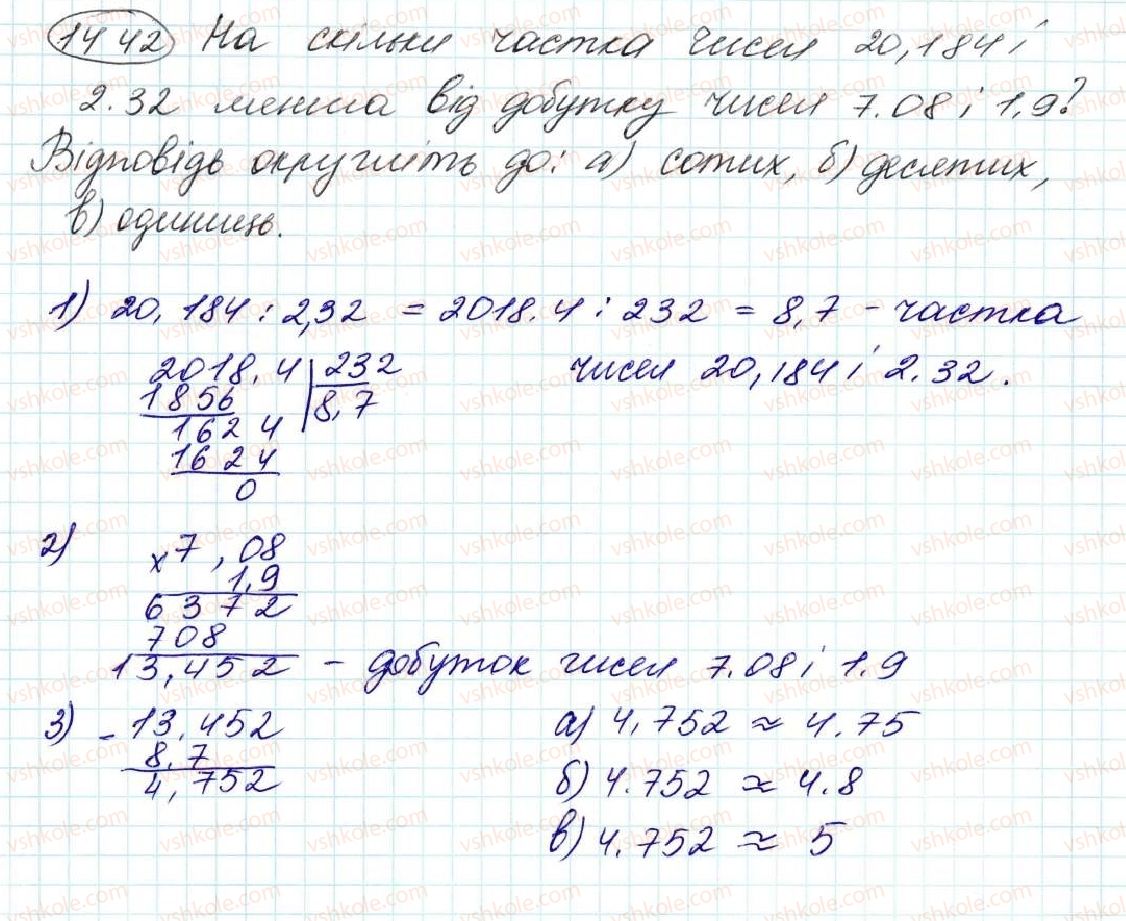 1442 На скільки частка чисел 20,184 і
2.32 менша від добутку чисел 7.08 і 1,9?
Відповідь округліть до: а) сотих, б) десятих,
в) одиниць.
1) 20,184 : 2,32 = 2018.4 : 232 = 8,7 - частка
чисел 20,184 і 2.32.
2018,4 | 232
1856 8,7
1624
1624
0
2) x 7,08
1,9
6372
708
13,452 - добуток чисел 7.08 і 1.9
3) - 13,452
8,7
4,752
а) 4,752 ≈ 4.75
б) 4.752 ≈ 4.8
в) 4.752 ≈ 5